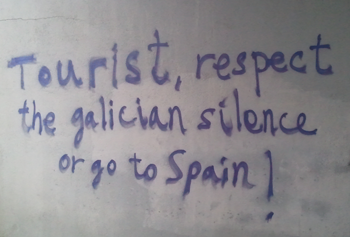 Tourist, respect
the galician silence
or go to Spain!